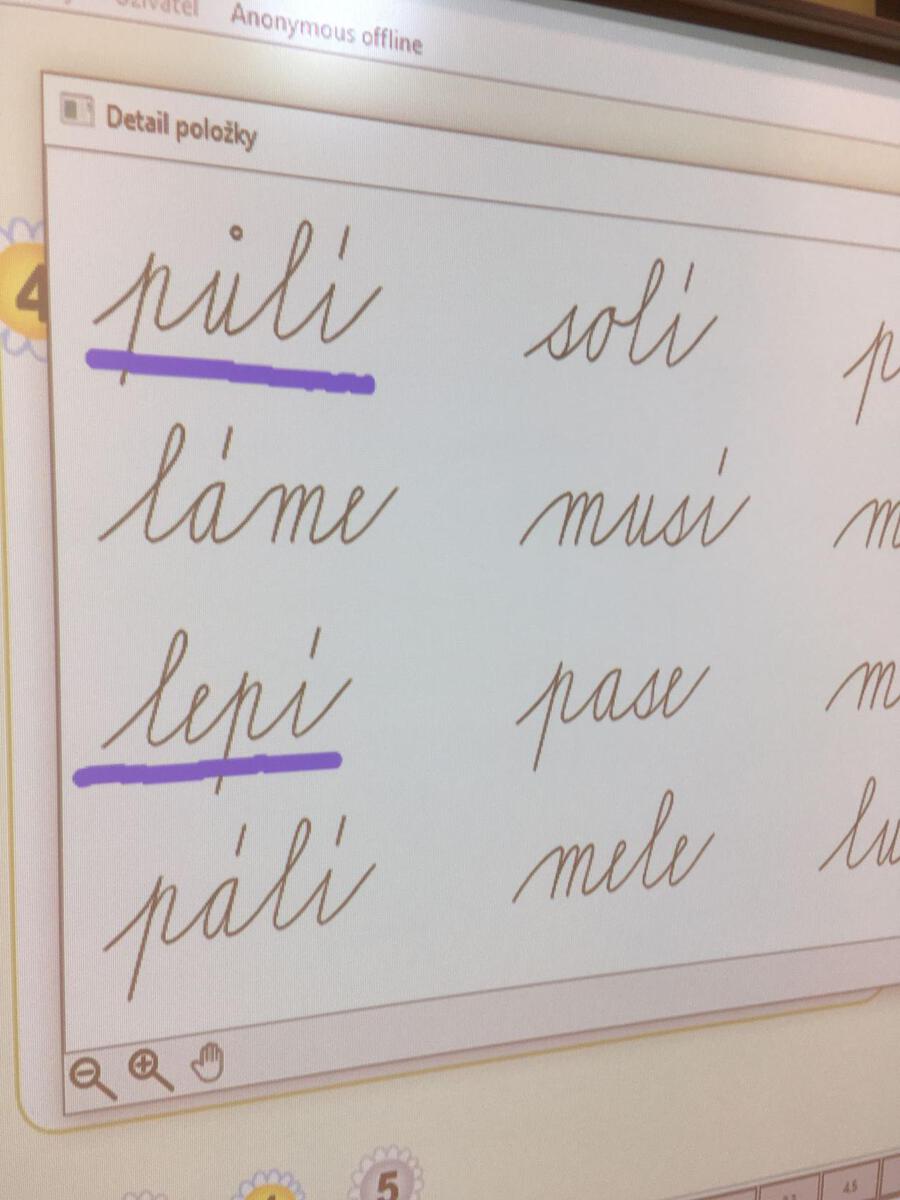 Uživatel Anonymous offline
Detail položky
4
půlí solí
láme musí
lepí pase
pálí mele
5
4.5